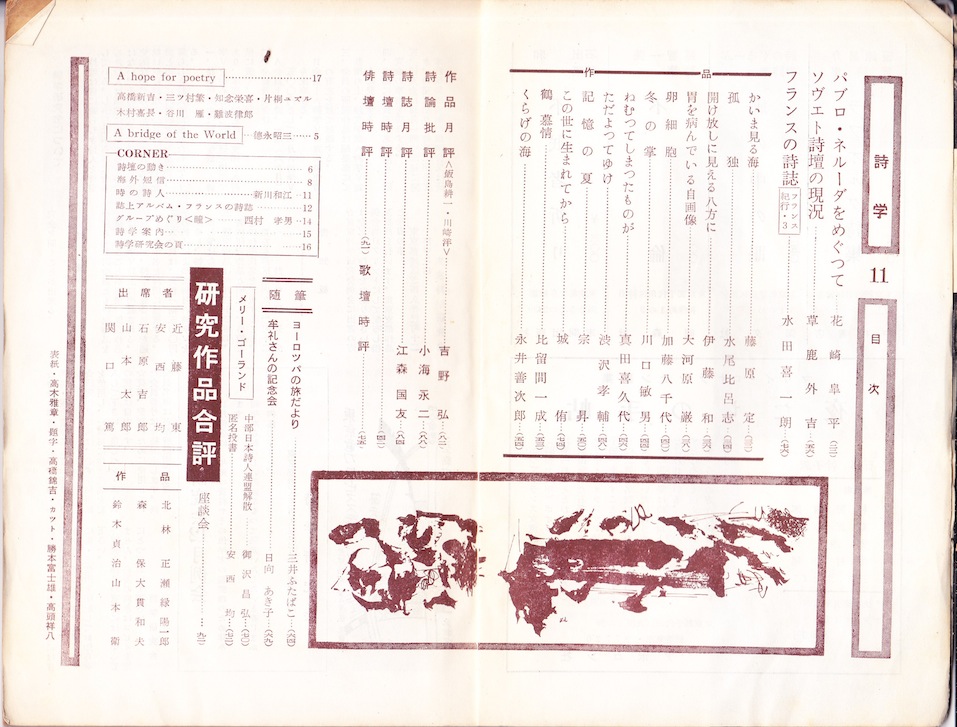 詩学
11
目次
パブロ・ネルーダをめぐつて……花崎皐平
ソヴエト詩壇の現況……草鹿外吉
フランスの詩誌 フランス紀行・3……水田喜一朗
作品
かいま見る海……藤原定
孤独……水尾比呂志
開け放しに見える八方に……伊藤和
胃を病んでいる自画像……大河原巌
卵細胞……加藤八千代
冬の掌……川口敏男
ねむつてしまつたものが……真田喜久代
ただよつてゆけ……渋沢孝輔
記憶の夏……宗昇
この世に生まれてから……城侑
鶴慕情……比留間一成
くらげの海……永井善次郎
作品月評<飯島耕一・川崎洋>……吉野弘
詩論批評……小海永二
詩誌月評……江森国友
詩壇時評
俳壇時評……歌壇時評
A hope for poetry……17
高橋新吉・三ツ村繁・知念栄喜・片桐ユズル
木村嘉長・谷川雁・難波律郎
A bridge of the World……徳永昭三……5
CORNER
詩壇の動き……6
海外短信……8
時の詩人……新川和江……11
誌上アルバム・フランスの詩誌……12
グループめぐり<龍>……西村孝男……14
詩学案内……15
詩学研究会の頁……16
随筆
ヨーロツパの旅だより……三井ふたばこ
牟礼さんの記念会……日向あき子
メリー・ゴーランド
中部日本詩人連盟解散……御沢昌弘
匿名投書……安西均
研究作品合評
座談会
出席者
近藤東
安西均
石原吉郎
山本太郎
関口篤
作品
北林正
瀬緑陽一郎
森保
大貫和夫
鈴木貞治
山本衛
表紙・高木雅章・題字・高橋錦吉・カツト・勝本富士雄・高頭祥八